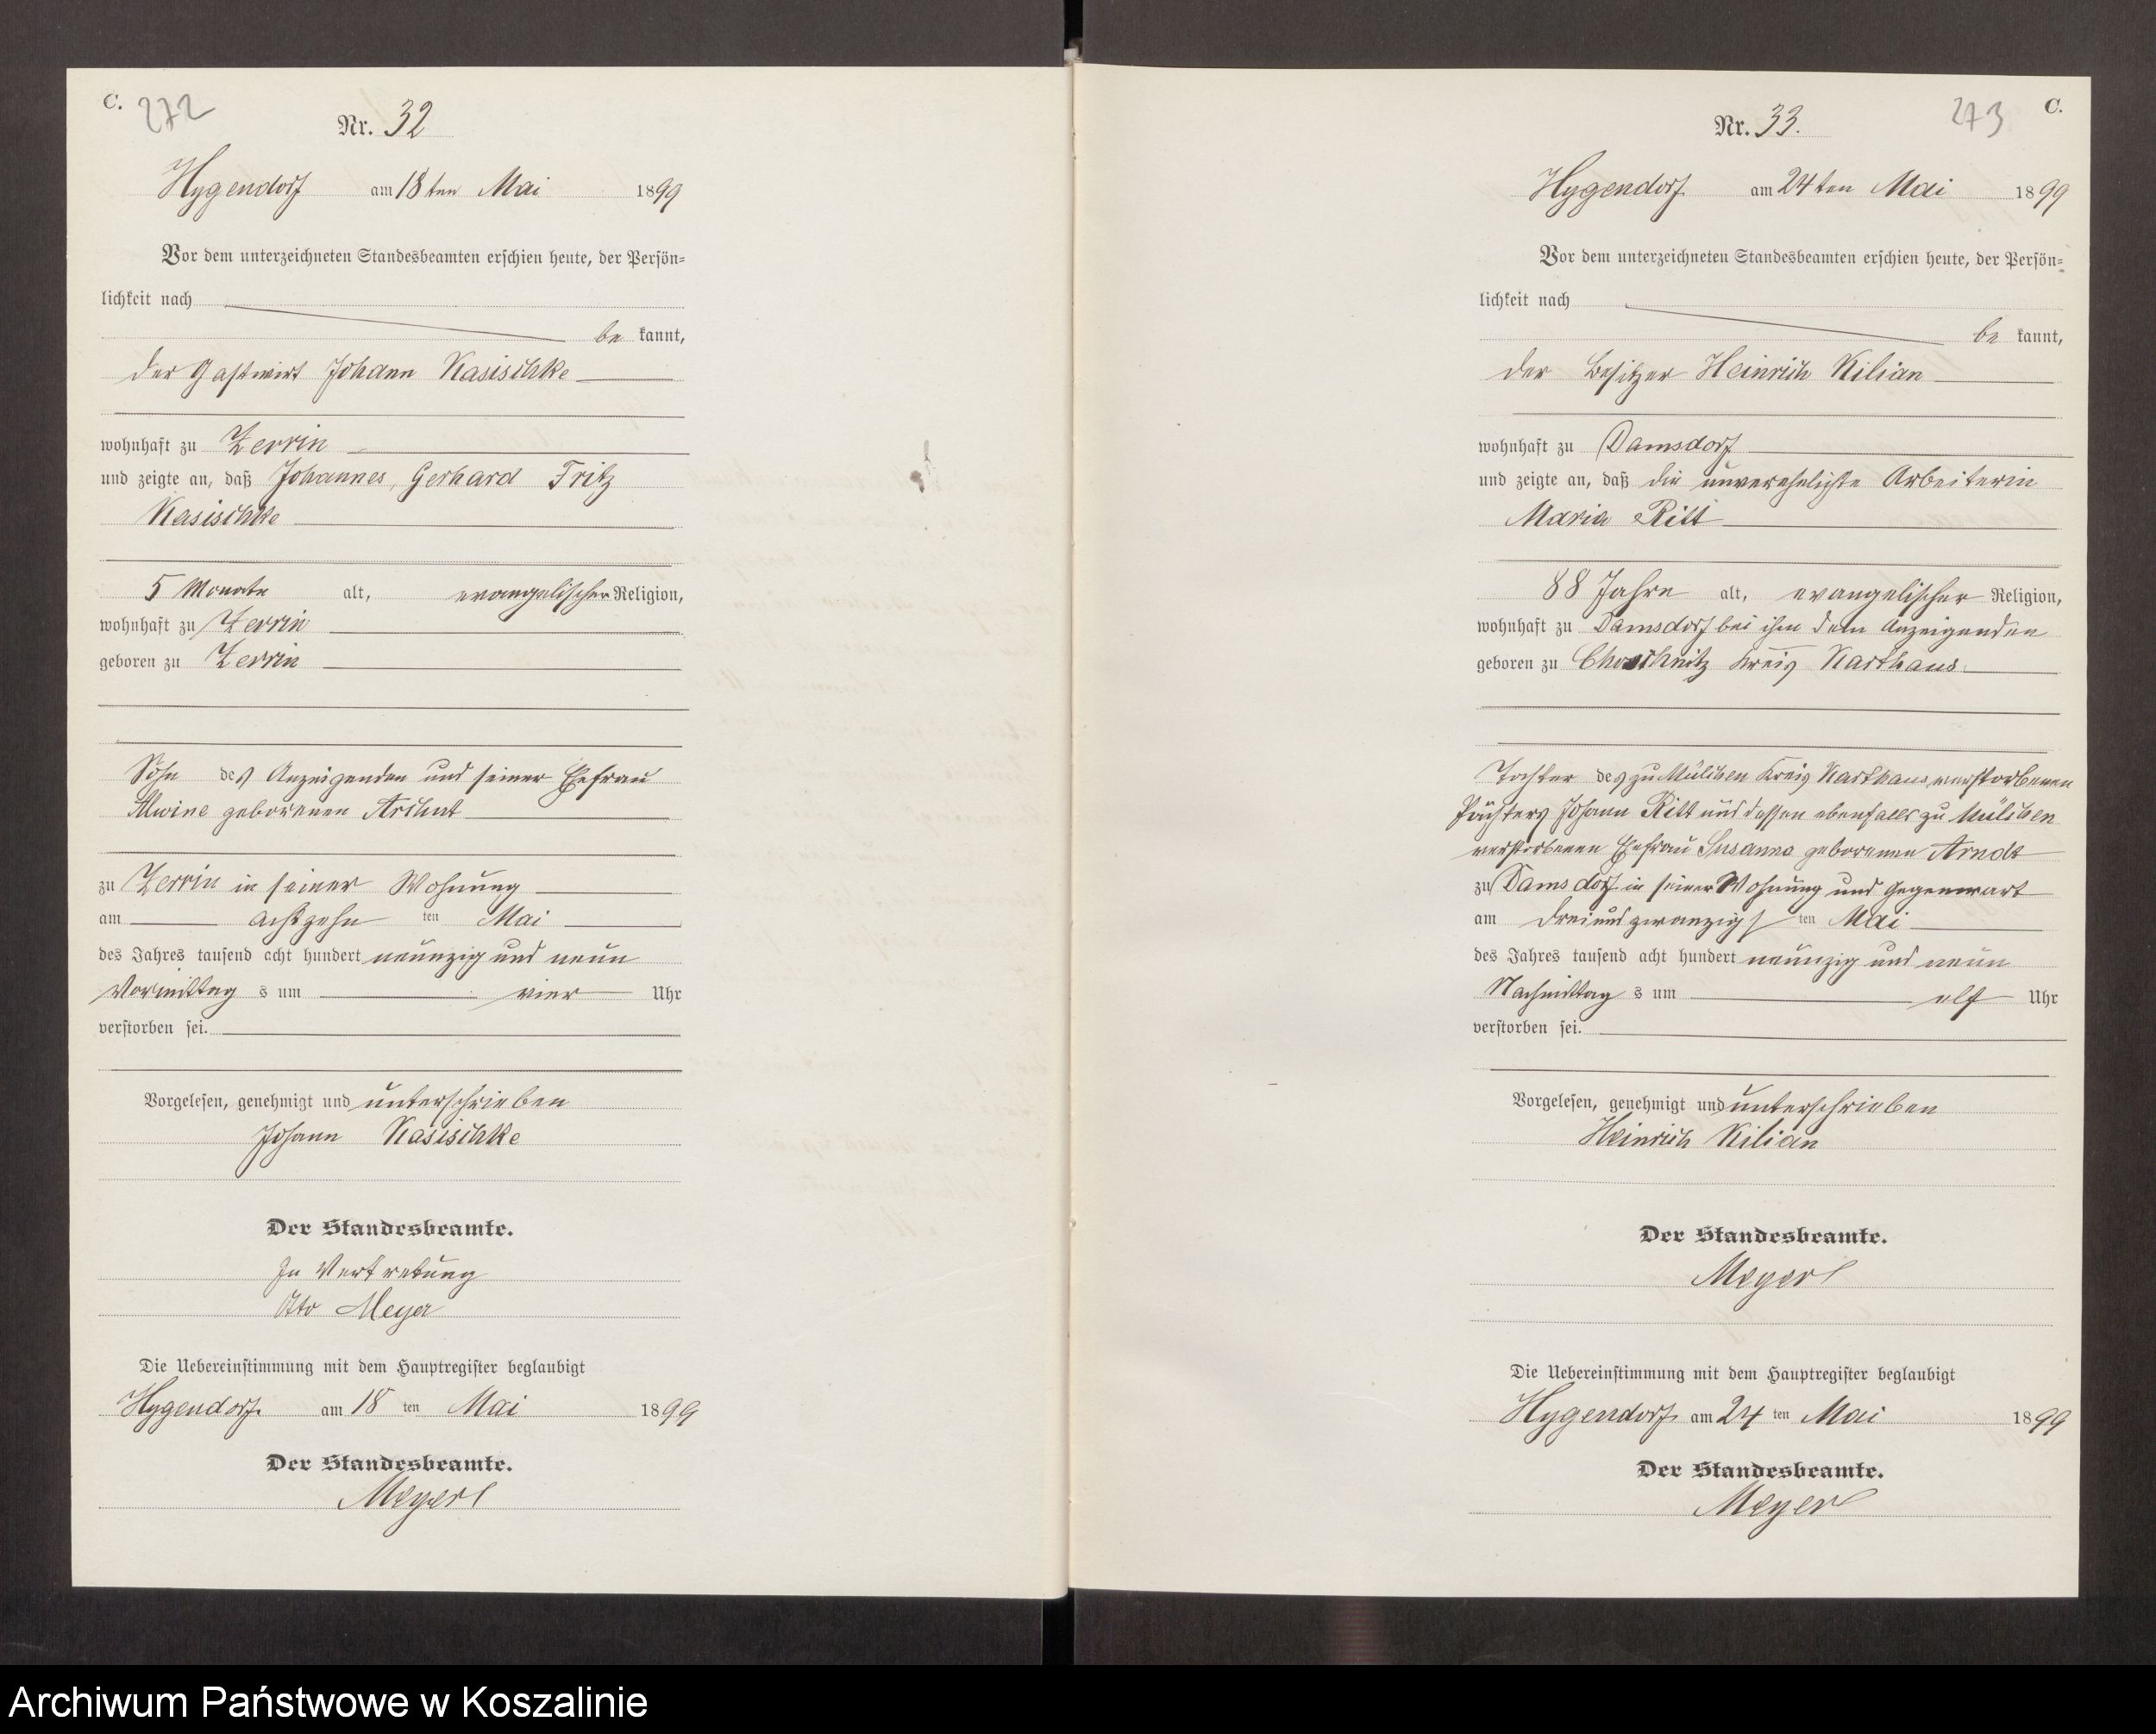 C. 272
Nr. 32
Hygendorf am 18ten Mai 1899
Vor dem unterzeichneten Standesbeamten erschien heute, der Persön-
lichkeit nach
be kannt,
der Gastwirt Johann Kasischke
wohnhaft zu Zerrin
und zeigte an, daß Johannes, Gerhard Fritz
Kasischke
5 Monate alt, evangelischer Religion,
wohnhaft zu Zerrin
geboren zu Zerrin
Sohn des Anzeigenden und seiner Ehefrau
Alwine geborenen Arndt
zu Zerrin in seiner Wohnung
am achtzehn ten Mai
des Jahres tausend acht hundert neunzig und neun
Vormittag s um vier Uhr
verstorben sei.
Vorgelesen, genehmigt und unterschrieben
Johann Kasischke
Der Standesbeamte.
In Vertretung
Otto Meyer
Die Uebereinstimmung mit dem Hauptregister beglaubigt
Hygendorf am 18 ten Mai 1899
Der Standesbeamte.
Meyer
273 C.
Nr. 33.
Hygendorf am 24ten Mai 1899
Vor dem unterzeichneten Standesbeamten erschien heute, der Persön-
lichkeit nach
be kannt,
der Besitzer Heinrich Kilian
wohnhaft zu Damsdorf
und zeigte an, daß die unverehelichte Arbeiterin
Maria Ritt
88 Jahre alt, evangelischer Religion,
wohnhaft zu Damsdorf bei ihm dem Anzeigenden
geboren zu Choschnitz Kreis Karthaus
Tochter des zu Mülchen Kreis Karthaus verstorbenen
Pächters Johann Ritt und dessen ebenfalls zu Mülchen
verstorbenen Ehefrau Susanna geborenen Arndt
zu Damsdorf in seiner Wohnung und Gegenwart
am dreiundzwanzigs ten Mai
des Jahres tausend acht hundert neunzig und neun
Nachmittag s um elf Uhr
verstorben sei.
Vorgelesen, genehmigt und unterschrieben
Heinrich Kilian
Der Standesbeamte.
Meyer
Die Uebereinstimmung mit dem Hauptregister beglaubigt
Hygendorf am 24 ten Mai 1899
Der Standesbeamte.
Meyer
Archiwum Państwowe w Koszalinie